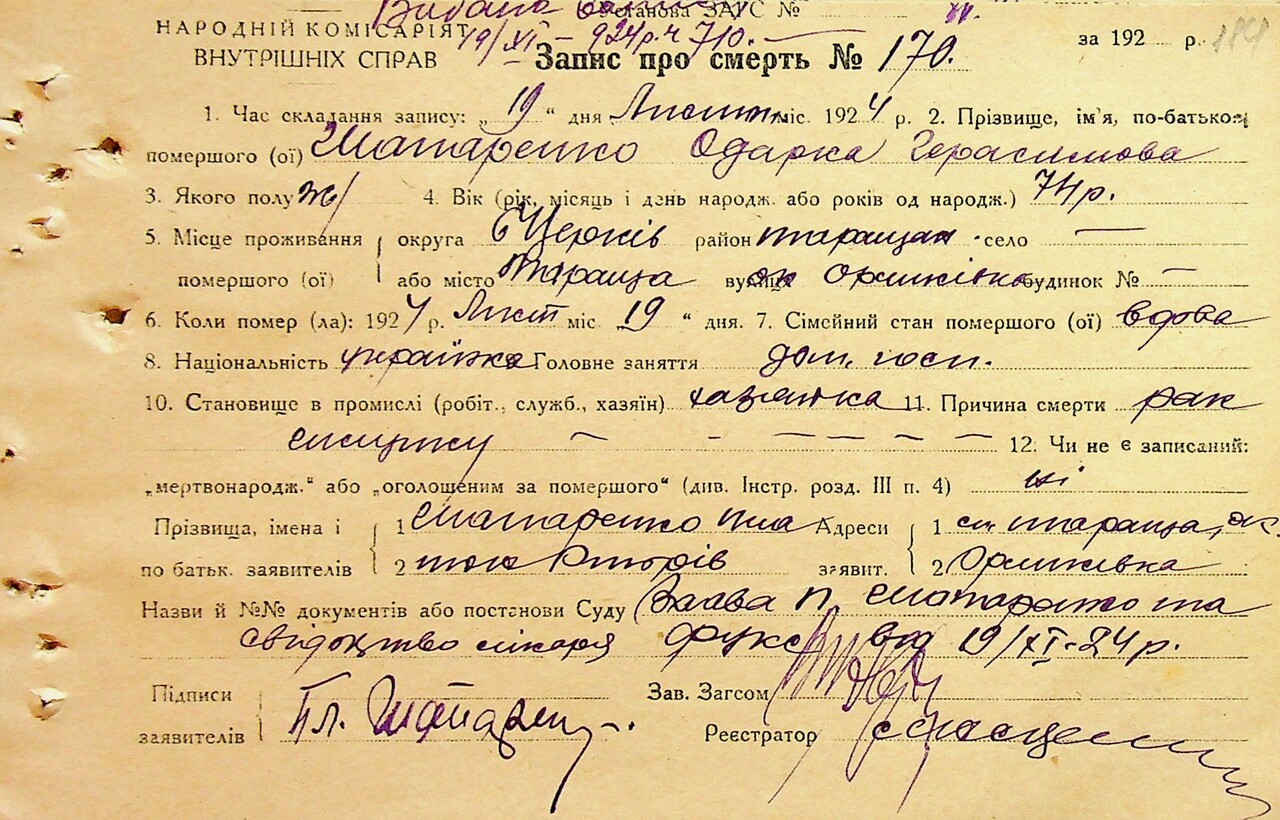 Видана
Установа ЗАГС №
НАРОДНІЙ КОМІСАРІЯТ
19/XI – 924р. ч 710.
за 192 р.
ВНУТРІШНІХ СПРАВ
Запис про смерть № 170.
1. Час складання запису: „19“ дня Листп. міс. 1924 р. 2. Прізвище, ім'я, по-батькові
помершого (ої) Шатаренко Одарка Герасимова
3. Якого полу ж/ 4. Вік (рік, місяць і день народж. або років од народж.) 74 р.
5. Місце проживання округа БЦерків район таращан село —
помершого (ої) або місто Тараща вулиця ок Оршківка будинок № —
6. Коли помер (ла): 1924 р. Лист міс 19 “ дня. 7. Сімейний стан помершого (ої) вдова
8. Національність українка Головне заняття дом. госп.
10. Становище в промислі (робіт., служб., хазяїн) хазяйка 11. Причина смерти рак
12. Чи не є записаний:
„мертвонародж.“ або „оголошеним за помершого“ (див. Інстр. розд. III п. 4) ні
Прізвища, імена і 1 Шатаренко Пла Адреси 1 м. Тараща, ок.
по батьк. заявителів 2 тон Юторів заявит. 2 Оршківка
Назви й №№ документів або постанови Суду Заява П. Шатаренко та
свідоцтво лікаря Фукс від 19/XI-24 р.
Підписи Зав. Загсом
заявителів Пл. Шатарен Реєстратор